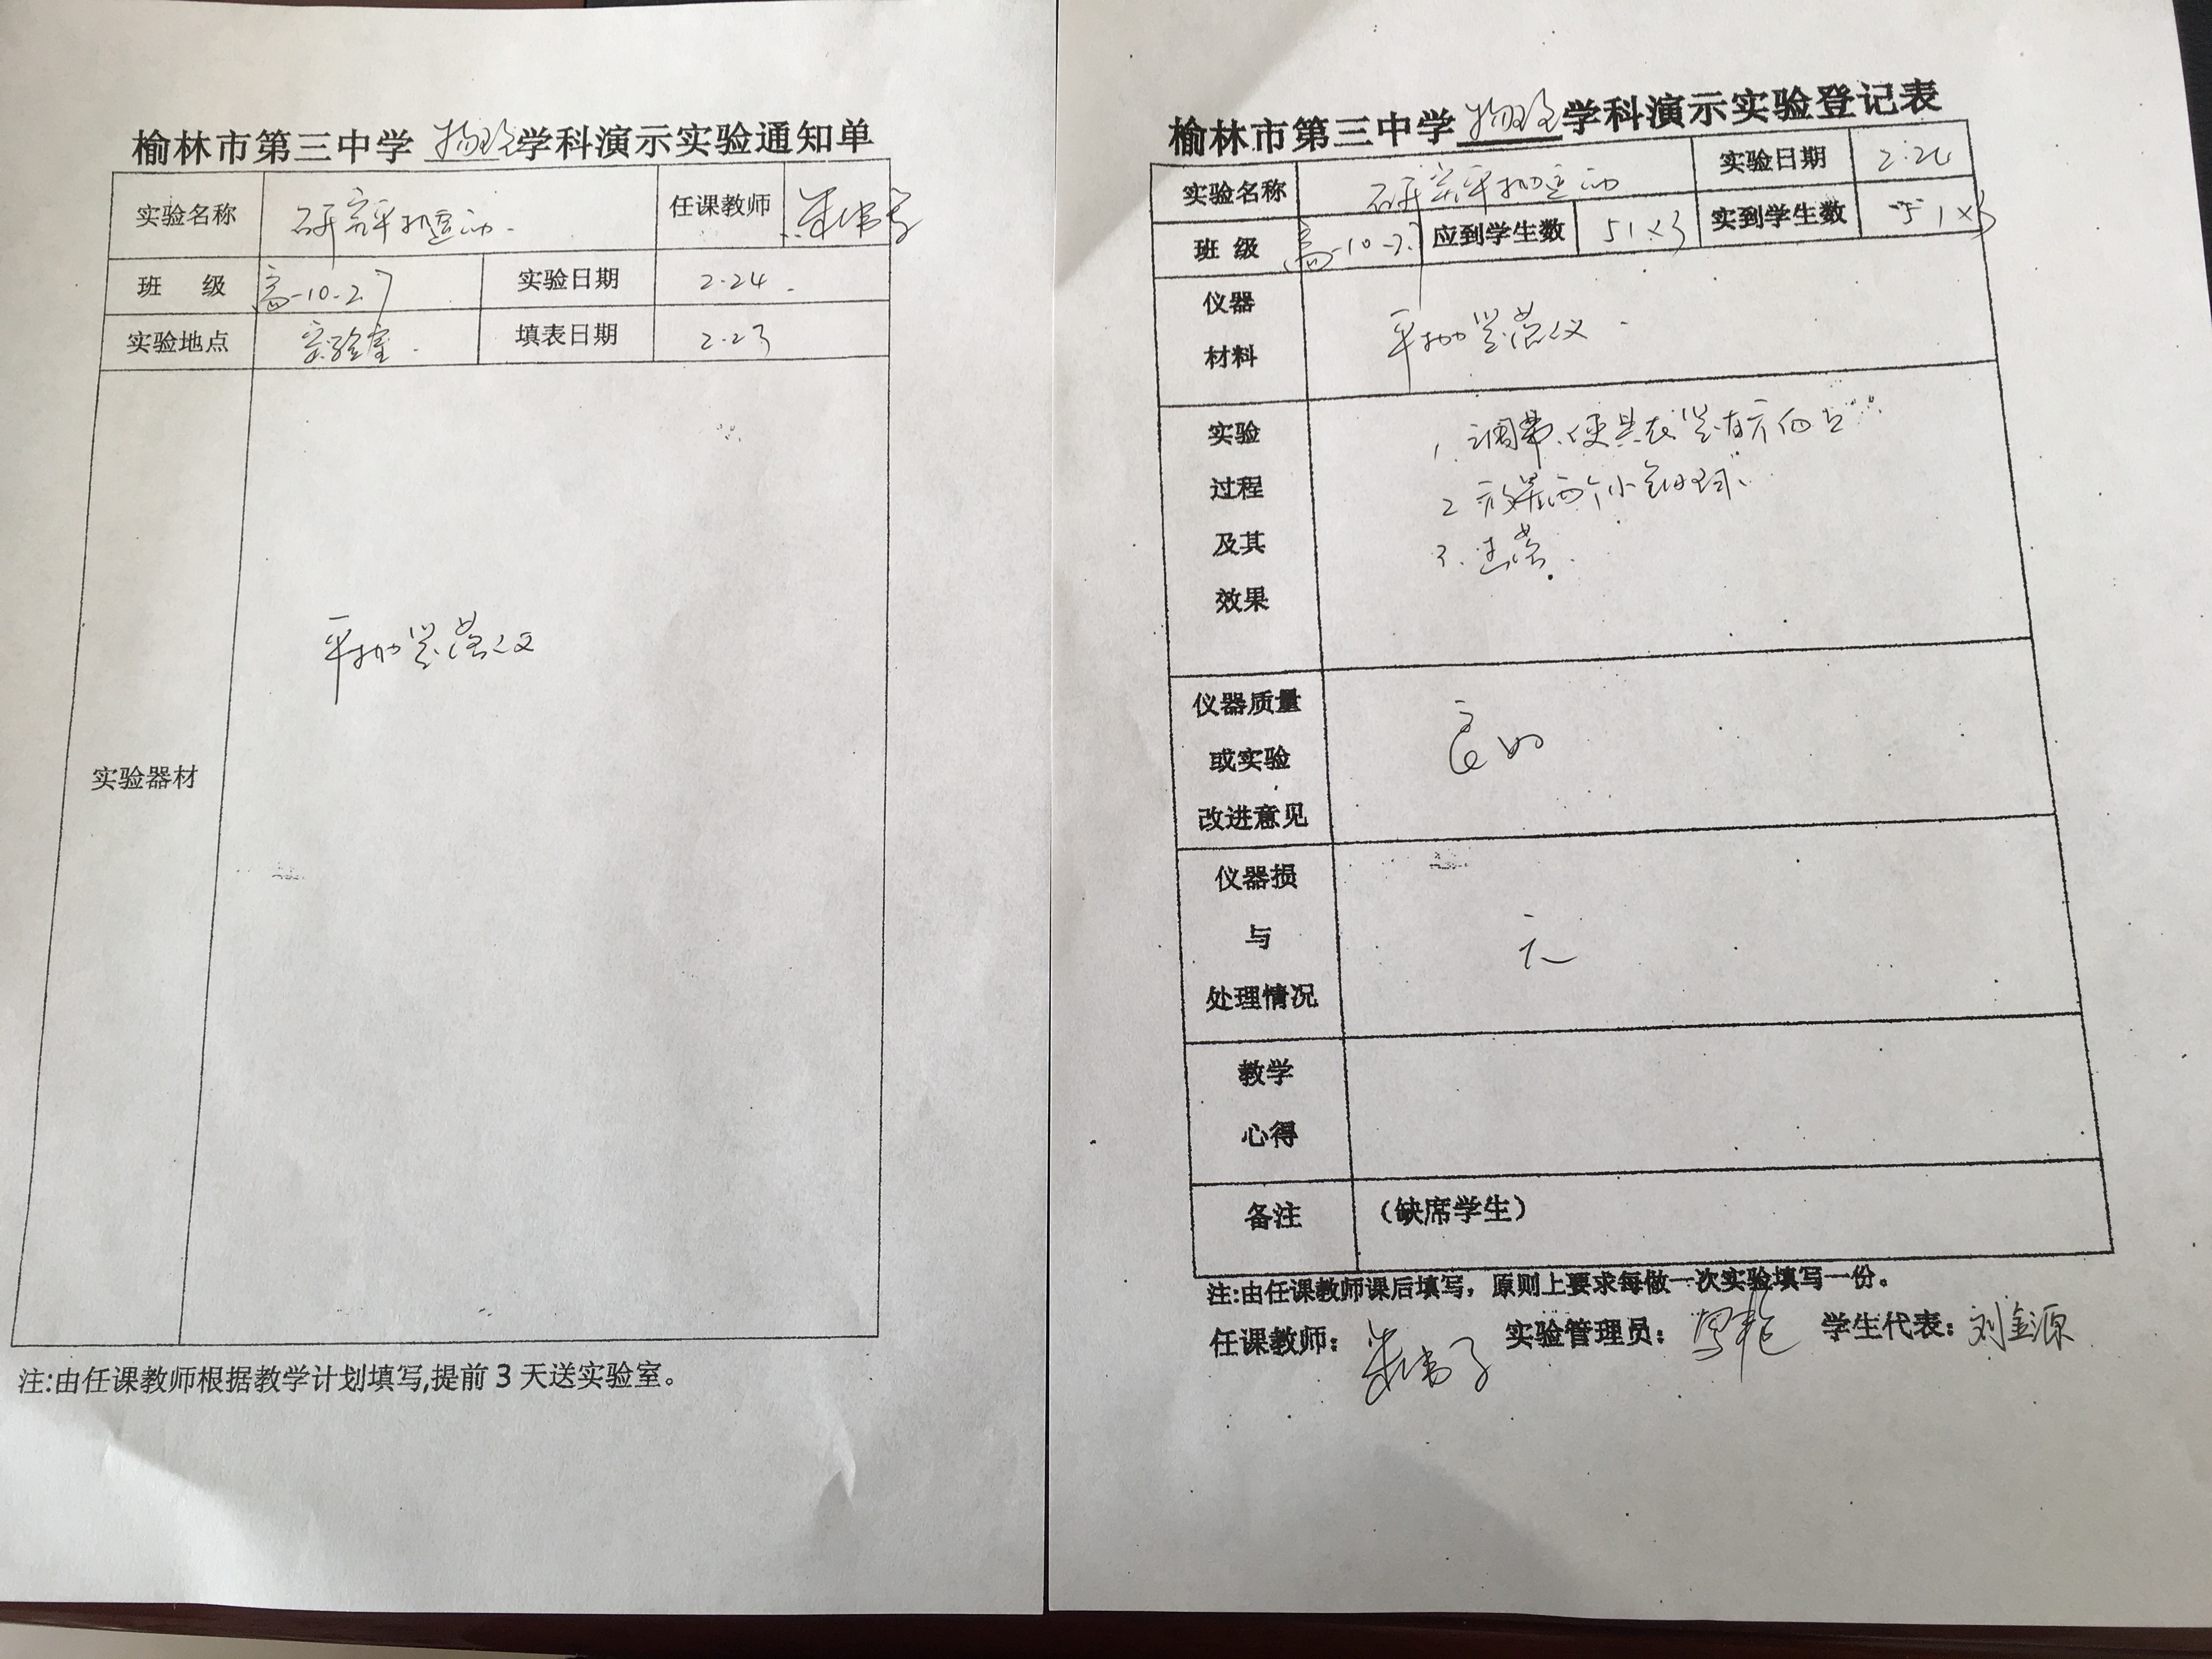 榆林市第三中学 物理 学科演示实验通知单
实验名称 研究平抛运动. 任课教师
班 级 高一10.27 实验日期 2.24.
实验地点 实验室. 填表日期 2.23
实验器材 平抛竖落仪
注:由任课教师根据教学计划填写,提前 3 天送实验室。
榆林市第三中学 物理 学科演示实验登记表
实验名称 研究平抛运动 实验日期 2.24
班 级 高一10.27 应到学生数 51×3 实到学生数 51×3
仪器
材料
平抛竖落仪.
实验
过程
及其
效果
1.调节、使其在竖直方向上
2.放置两个小钢球、
3.
仪器质量
或实验
改进意见
良好
仪器损
与
处理情况
无
教学
心得
备注 (缺席学生)
注:由任课教师课后填写，原则上要求每做一次实验填写一份。
任课教师: 实验管理员: 学生代表: 刘金源